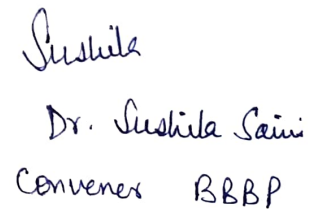 Sushila
Dr. Sushila Saini
Convener BBBP